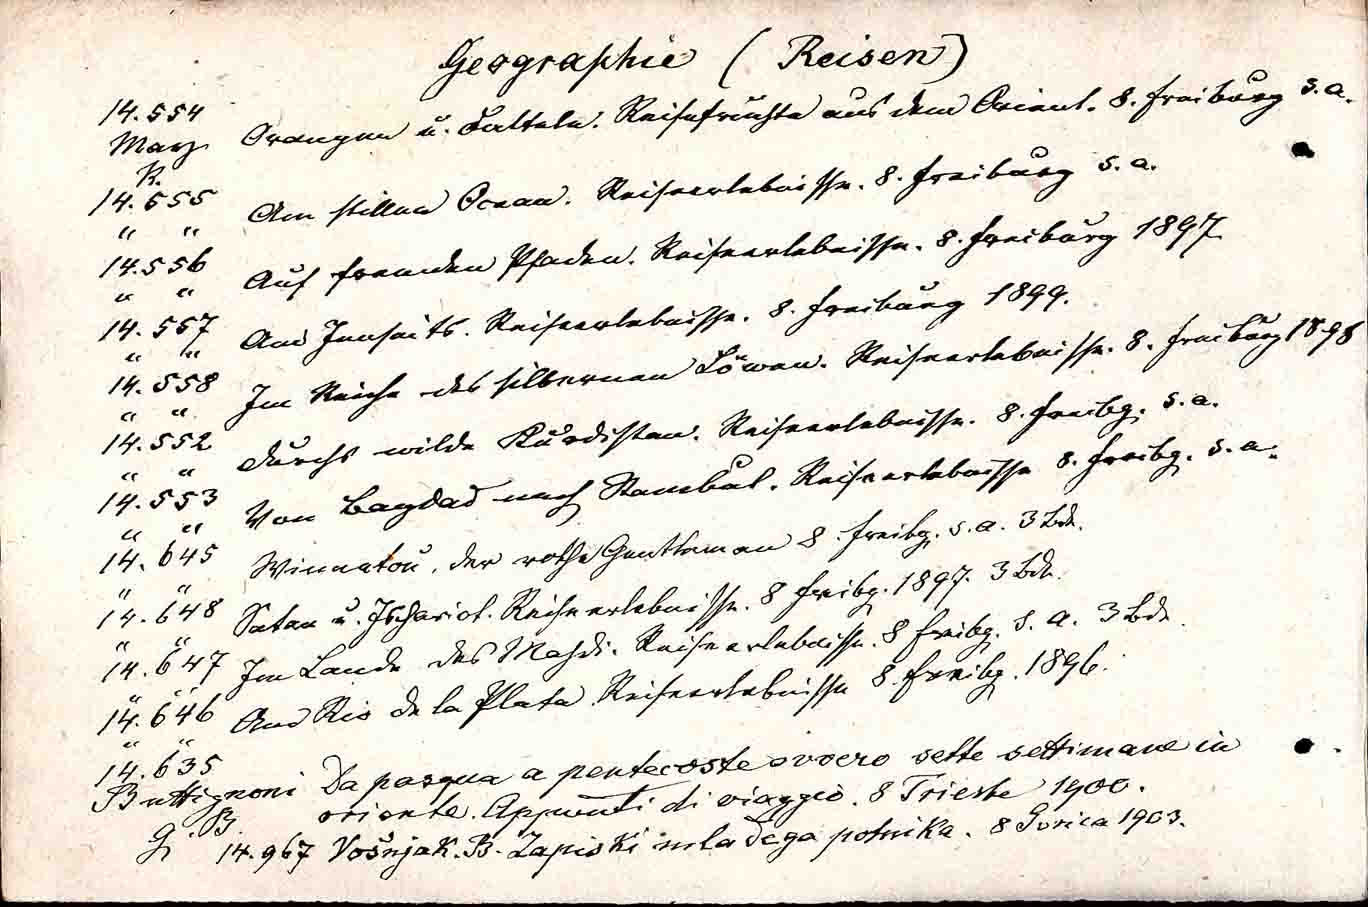 Geographie (Reisen)
14.554 Orangen u. Datteln. Reisefrüchte aus dem Orient. 8. Freiburg s.a.
May K.
14.555 Am stillen Ocean. Reiseerlebnisse. 8. Freiburg s.a.
" "
14.556 Auf fremden Pfaden. Reiseerlebnisse. 8. Freiburg 1897
" "
14.557 Am Jenseits. Reiseerlebnisse. 8. Freiburg 1899.
" "
14.558 Im Reiche des silbernen Löwen. Reiseerlebnisse. 8. Freiburg 1898
" "
14.552 Durchs wilde Kurdistan. Reiseerlebnisse. 8. Freibg. s.a.
" "
14.553 Von Bagdad nach Stambul. Reiseerlebnisse 8. Freibg. s.a.
" "
14.645 Winnetou, der rothe Gentleman 8. Freibg. s.a. 3 Bde.
" "
14.648 Satan u. Ischariot. Reiseerlebnisse. 8 Freibg. 1897. 3 Bde.
" "
14.647 Im Lande des Mahdi. Reiseerlebnisse. 8 Freibg. s.a. 3 Bde.
" "
14.646 Am Rio de la Plata Reiseerlebnisse 8. Freibg. 1896.
" "
14.635 Da pasqua a pentecoste ovvero sette settimane in
Buttignoni oriente. Appunti di viaggio. 8 Trieste 1900.
G. B.
14.967 Vošnjak. B. Zapiski mladega potnika. 8 Gorica 1903.